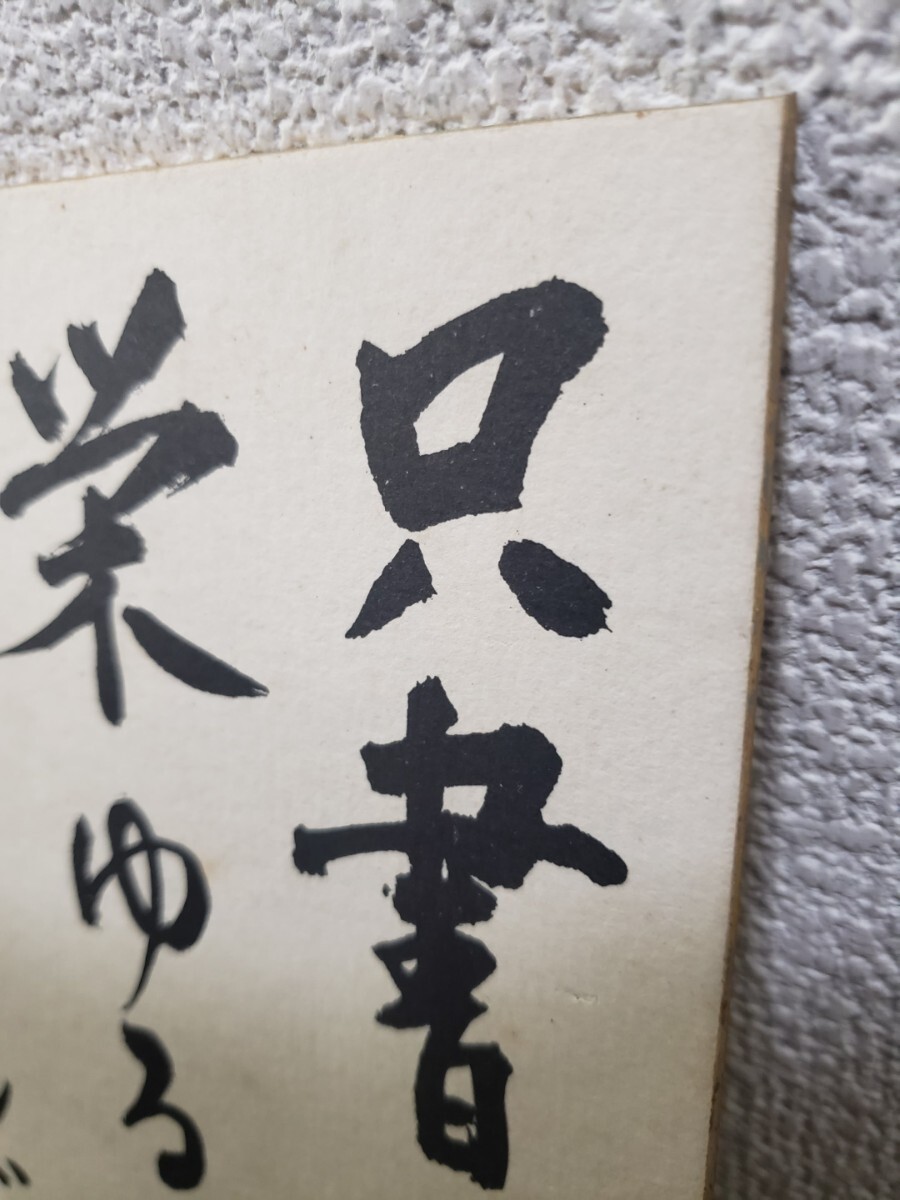 只書
栄ゆる